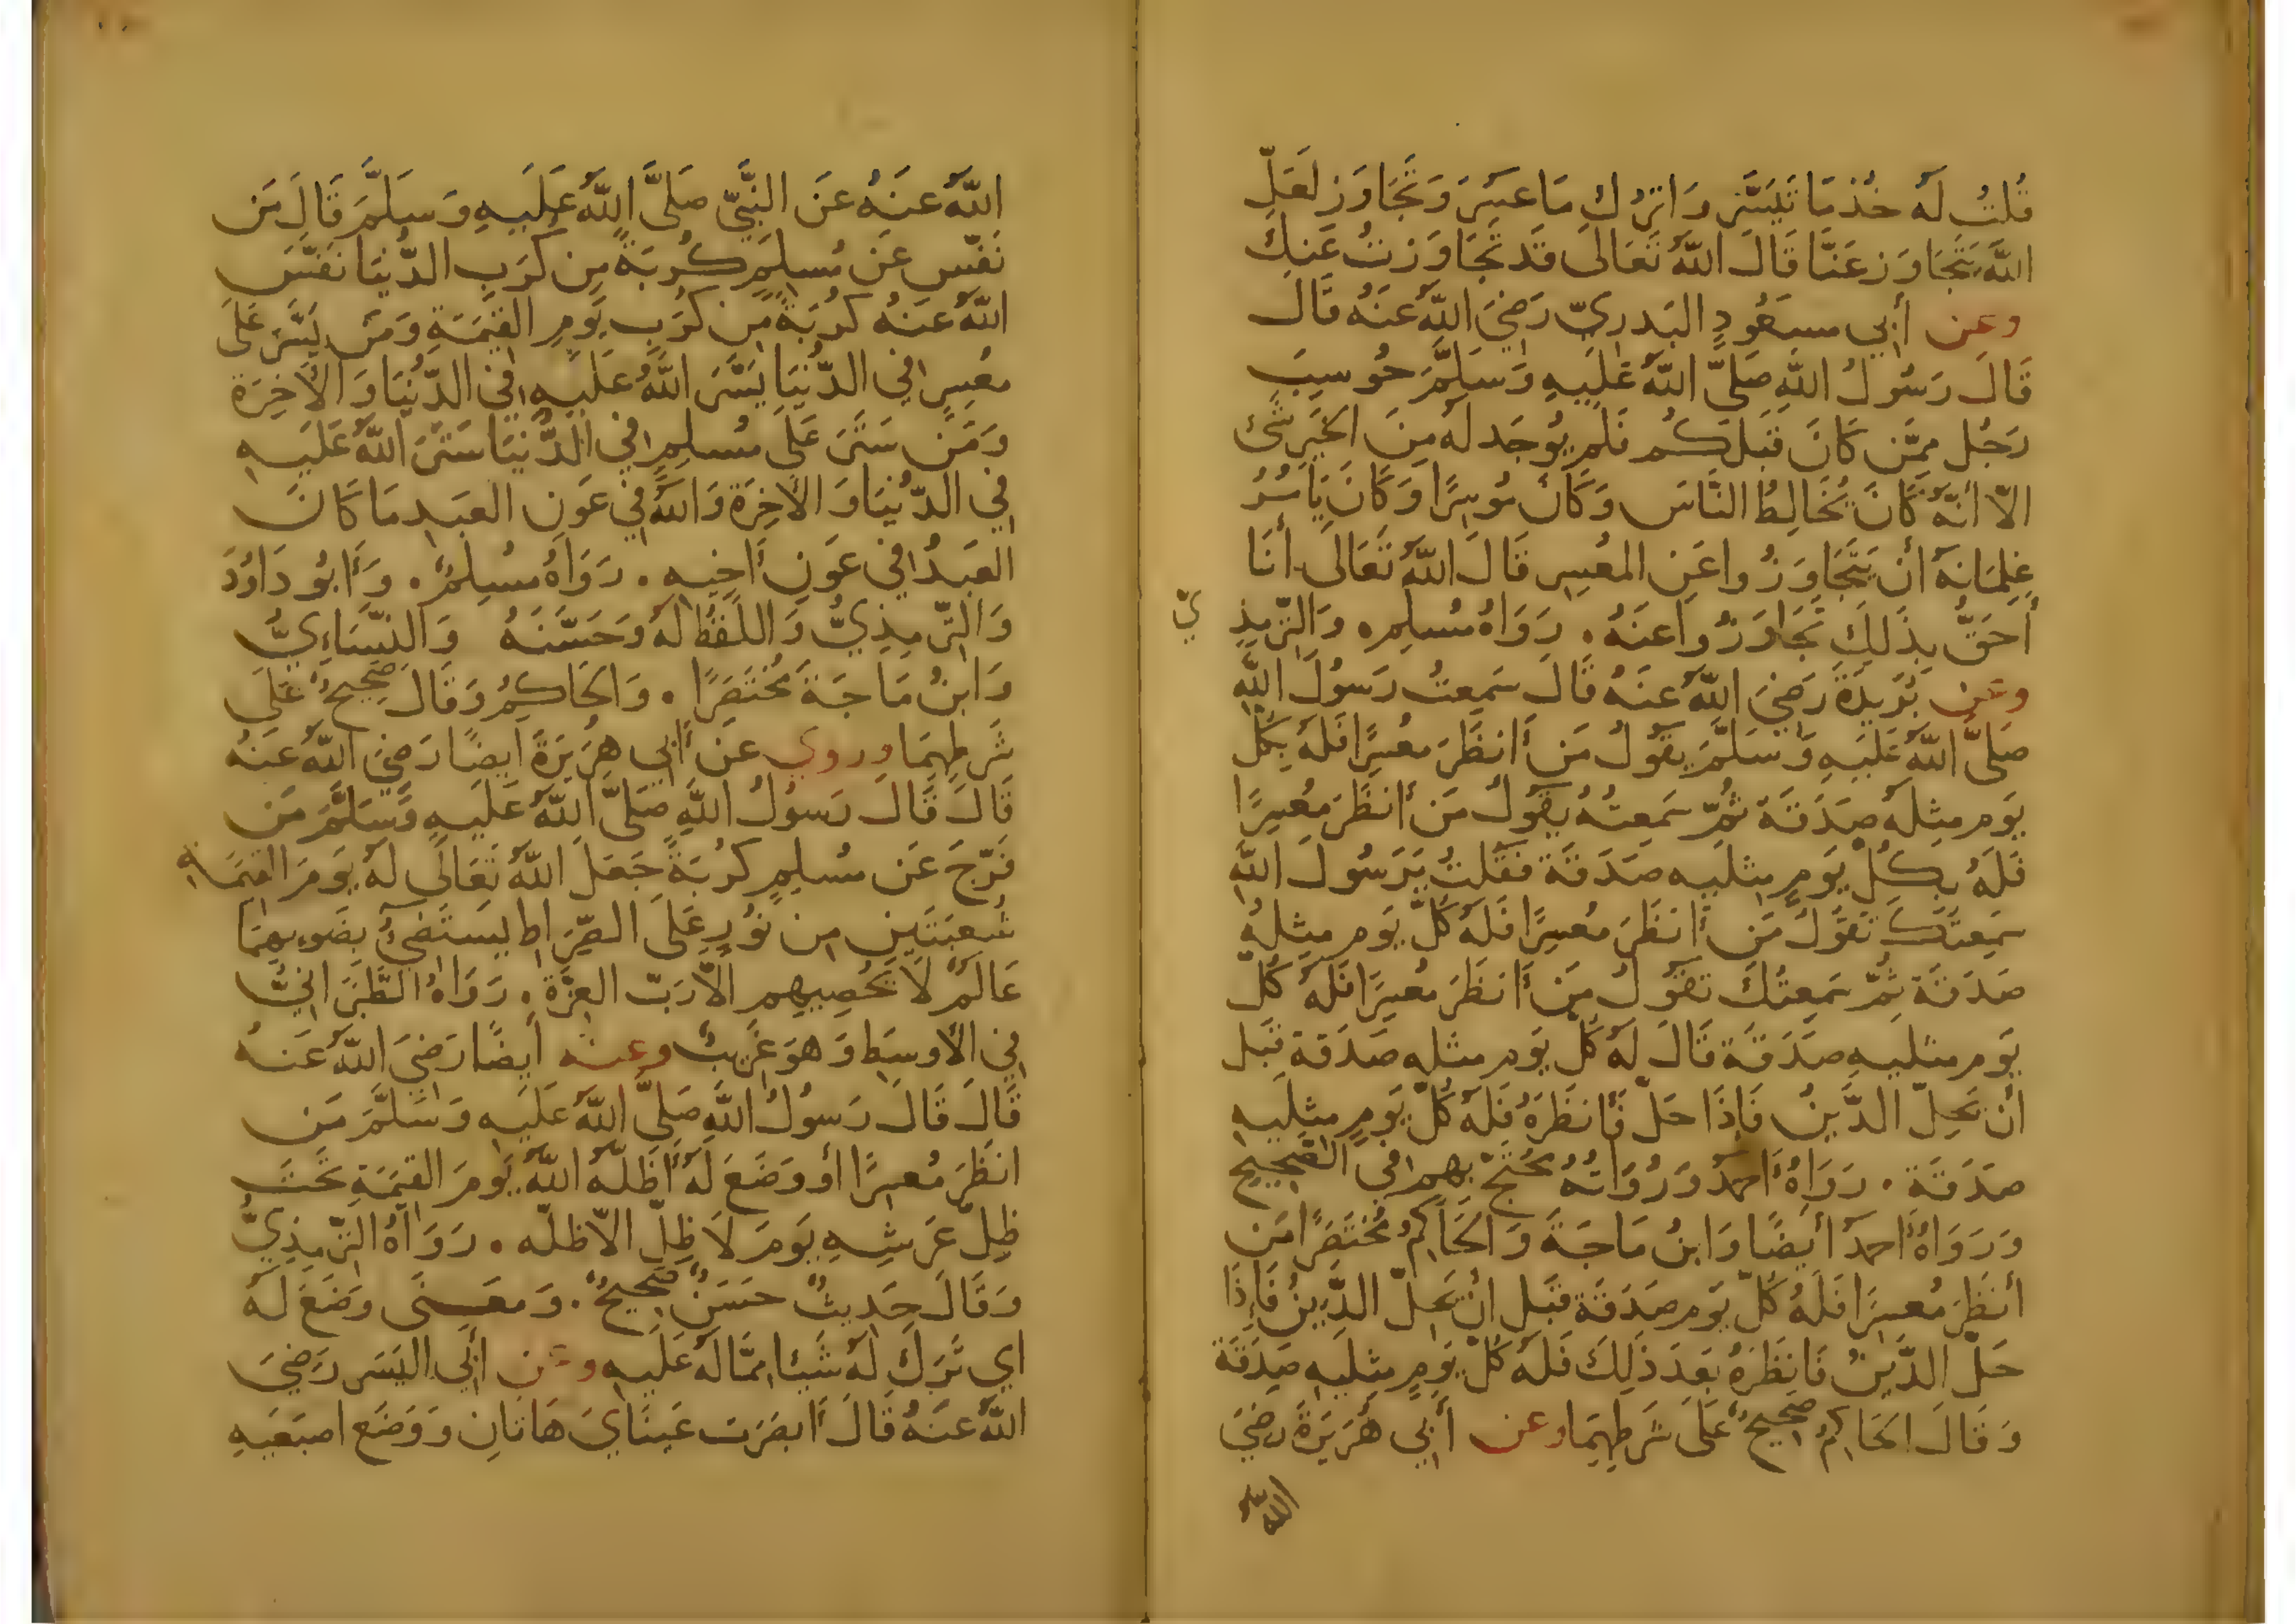 قُلتُ لَهُ خُذ مَا تَيَسَّرَ وَاترُك مَا عَسِرَ وَتَجَاوَز لَعَلّ
اللَّهَ يَتَجَاوَز عَنَّا قَالَ اللَّهُ تَعَالَى قَد تَجَاوَزتُ عَنكَ
وعن أَبِي مسعُودٍ البَدرِيّ رَضِيَ اللَّهُ عَنهُ قَالَ
قَالَ رَسُولُ اللَّهِ صَلَّى اللَّهُ عَلَيهِ وَسَلَّمَ حُوسِبَ
رَجُل مِمَّن كَانَ قَبلَكُم فَلَم يُوجَد لَهُ مِنَ الخَيرِ شَئ
الّا أَنَّهُ كَانَ يُخَالِطُ النَّاسَ وَكَانَ مُوسِرًا وَكَانَ يَامُرُ
غِلمَانَهُ أن يَتَجَاوَزُوا عَنِ المُعسِرِ قَالَ اللَّهُ تَعَالَى أَنَا
أَحَقُّ بِذَلِكَ تَجَاوَزُوا عَنهُ . رَوَاهُ مُسلِم . وَالتّرمِذِ
يّ
وعن بُرَيدَةَ رَضِيَ اللَّهُ عَنهُ قَالَ سَمِعتُ رَسُولَ اللَّهِ
صَلَّى اللَّهُ عَلَيهِ وَسَلَّمَ يَقُولُ مَن أَنظَرَ مُعسِرًا فَلَهُ بِكُلّ
يَوم مِثلِهِ صَدَقَة ثُمّ سَمِعتُهُ يَقُولُ مَن أَنظَرَ مُعسِرًا
فَلَهُ بِكُلّ يَومٍ مِثلَيهِ صَدَقَة فَقُلتُ يَرَسُولَ اللَّهِ
سَمِعتُكَ تَقُولُ مَن أَنظَرَ مُعسِرًا فَلَهُ كُلّ يَومٍ مِثلِهِ
صَدَقَة ثُمّ سَمِعتُكَ تَقُولُ مَن أَنظَرَ مُعسِرًا فَلَهُ كُلّ
يَوم مثلَيهِ صَدَقَة قَالَ لَهُ كُلّ يَوم مثلِهِ صَدَقَة قَبلَ
أَن يَحِلّ الدَّينُ فَإِذَا حَلّ فَأَنظَرَهُ فَلَهُ كُلّ يَومٍ مِثلَيهِ
صَدَقَة . رَوَاهُ أَحمَدُ وَرُوَاتُهُ مُحتَجّ بِهِم فِي الصَّحِيحِ
وَرَوَاهُ أَحمَدُ أَيضًا وَابنُ مَاجَةَ وَالحَاكِمُ مُختَصَرًا مَن
أَنظَرَ مُعسِرًا فَلَهُ كُلّ يَوم صَدَقَة قَبلَ أَن يَحِلّ الدَّينُ فَإِذَا
حَلّ الدَّينُ فَانظَرَهُ بَعدَ ذَلِكَ فَلَهُ كُلّ يَومٍ مِثلَيهِ صَدَقَة
وَقَالَ الحَاكِمُ صَحِيحٌ عَلَى شَرطِهِمَا وعن أَبِي هُرَيرَةَ رَضِيَ
اللَّهُ
اللَّهُ عَنهُ عَنِ النَّبِيّ صَلَّى اللَّهُ عَلَيهِ وَسَلَّمَ قَالَ مَن
نَفَّسَ عَن مُسلِمٍ كُربَةً مِن كُرَبِ الدُّنيَا نَفَّسَ
اللَّهُ عَنهُ كُربَةً مِن كُرَبِ يَومِ القِيَمَةِ وَمَن يَسَّرَ عَلَى
مُعسِرٍ فِي الدُّنيَا يَسَّرَ اللَّهُ عَلَيهِ فِي الدُّنيَا وَالأخِرَة
وَمَن سَتَرَ عَلَى مُسلِمٍ فِي الدُّنيَا سَتَرَ اللَّهُ عَلَيهِ
فِي الدُّنيَا وَالأخِرَة وَاللَّهُ فِي عَونِ العَبدِ مَا كَانَ
العَبدُ فِي عَونِ أَخِيهِ . رَوَاهُ مُسلِمٌ . وَأَبُو دَاوُدَ
وَالتّرمِذِيُّ وَاللَّفظُ لَهُ وَحَسَّنَهُ وَالنَّسَاءِيُّ
وَابنُ مَاجَةَ مُختَصَرًا . وَالحَاكِمُ وَقَالَ صَحِيحٌ عَلَى
شَرطِهِمَا وروي عَن أَبِي هُرَيرَةَ ايضًا رَضِيَ اللَّهُ عَنهُ
قَالَ قَالَ رَسُولُ اللَّهِ صَلَّى اللَّهُ عَلَيهِ وَسَلَّمَ مَن
فَرّجَ عَن مُسلِمٍ كُربَةً جَعَلَ اللَّهُ تَعَالَى لَهُ يَومَ القِيَمَةِ
شُعبَتَينِ مِن نُورٍ عَلَى الصّرَاطِ يَستَضِيُ بِضَوءِهِمَا
عَالَمٌ لَا يُحصِيهِم الّا رَبّ العِزَّةِ . رَوَاهُ الطَّبَرَانِيُّ
فِي الأَوسَطِ وَهوَ غَرِيبٌ وعنه أَيضًا رَضِيَ اللَّهُ عَنهُ
قَالَ قَالَ رَسُولُ اللَّهِ صَلَّى اللَّهُ عَلَيهِ وَسَلَّمَ مَن
انظَرَ مُعسِرًا أَو وَضَعَ لَهُ أَظَلَّهُ اللَّهُ يَومَ القِيَمَةِ تَحتَ
ظِلّ عَرشِهِ يَومَ لَا ظِلّ الّا ظلّه . رَوَاهُ التّرمِذِيُّ
وَقَالَ حَدِيثٌ حَسَنٌ صَحِيحٌ . وَمَعنَى وَضَعَ لَهُ
اي تَرَكَ لَهُ شَيئا مِمَّا لَهُ عَلَيهِ وعن أَبِي اليَسَرِ رَضِيَ
اللَّهُ عَنهُ قَالَ أَبصَرَت عَينَايَ هَاتَانِ وَوَضَع اصبَعَيهِ